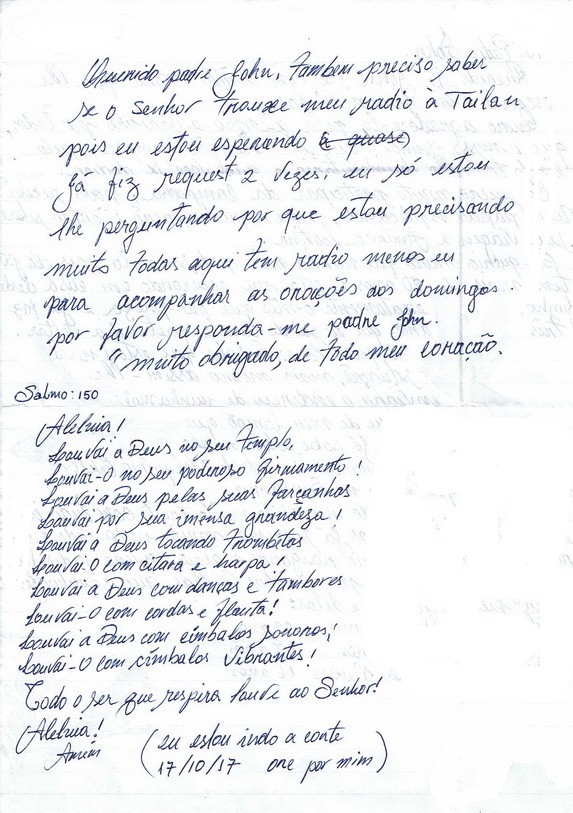 Querido padre John, tambem preciso saber
se o Senhor trouxe meu radio à Tailan
pois eu estou esperando (e quase)
Já fiz request 2 vezes, eu só estou
lhe perguntando por que estou precisando
muito todas aqui têm radio menos eu
para acompanhar as orações aos domingos.
por favor responda-me padre John.
"muito obrigado, de todo meu coração.
Salmo: 150
Aleluia!
Louvai a Deus no seu templo,
Louvai-O no seu poderoso firmamento!
Louvai a Deus pelas suas façanhas
Louvai por sua imensa grandeza!
Louvai a Deus tocando trombetas
Louvai.O com cítara e harpa!
Louvai a Deus com danças e tambores
Louvai-O com cordas e flauta!
Louvai a Deus com címbalos sonoros;
Louvai-O com címbalos vibrantes!
Todo o ser que respira louve ao Senhor!
Aleluia!
Amém
(eu estou indo a corte
17/10/17 ore por mim)